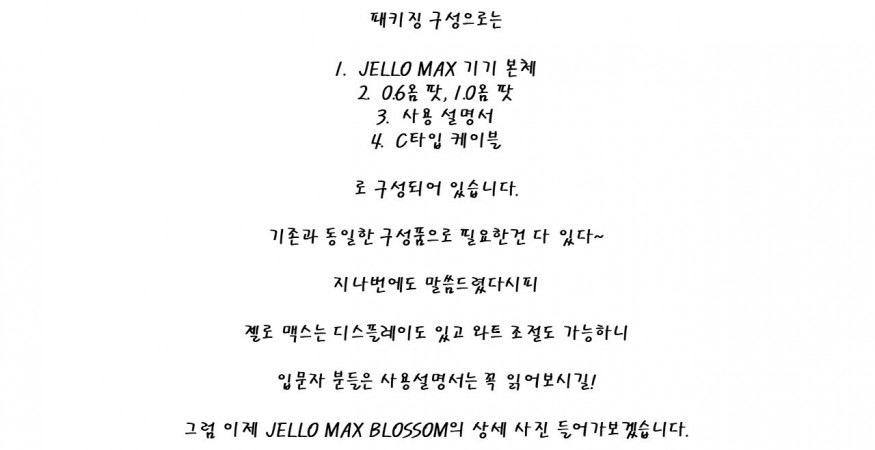 패키징 구성으로는
1. JELLO MAX 기기 본체
2. 0.6옴 팟, 1.0옴 팟
3. 사용 설명서
4. C타입 케이블
로 구성되어 있습니다.
기존과 동일한 구성품으로 필요한건 다 있다~
지나번에도 말씀드렸다시피
젤로 맥스는 디스플레이도 있고 와트 조절도 가능하니
입문자 분들은 사용설명서는 꼭 읽어보시길!
그럼 이제 JELLO MAX BLOSSOM의 상세 사진 들어가보겠습니다.